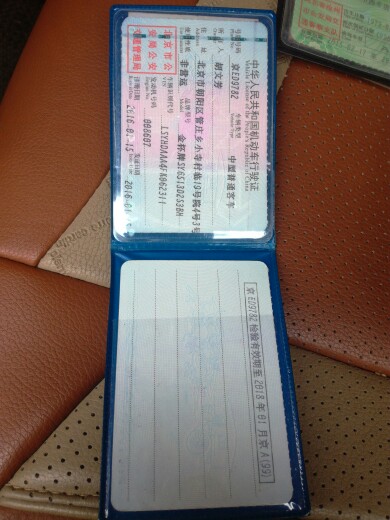 中华人民共和国机动车行驶证
Vehicle License of the People's Republic of China
号牌号码 京ED9782 车辆类型 中型普通客车
所有人 胡文芳
住址 北京市朝阳区管庄乡小寺村临19号院4号3号
使用性质 非营运 品牌型号 金杯牌SY6513D2S3BH
北京市公安局公安交通管理局
车辆识别代号 LSYHDAAA4FK062311
发动机号码 008607
注册日期 2016-01-15 发证日期 2016-01
京ED9782检验有效期至2018年01月京A(99)